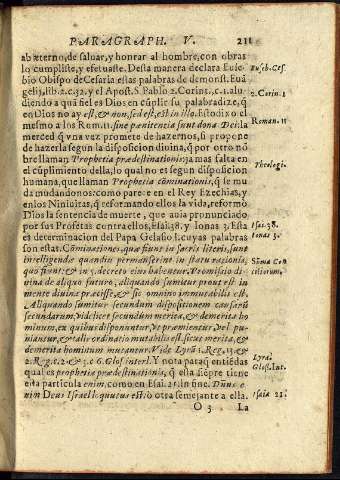 PARAGRAPH. V. 211
ab æterno, de saluar, y honrar al hombre, con obras
lo cumpliste, y efetuaste. Desta manera declara Euse-
bio Obispo de Cesaria estas palabras de demonst. Euã
gelij, lib. 2. c. 32. y el Apost. S. Pablo 2. Corint. c. 1. alu-
diendo a quã fiel es Dios en cũplir su palabra dize, q̃
en Dios no ay est, & non, sed est, est in illo. Esto dixo el
mesmo a los Rom. 11. sine pœnitentia sunt dona Dei: la
merced q̃ vna vez promete de hazernos, si propone
de hazerla segun la disposicion diuina, q̃ por otro nõ
bre llaman Prophetia prædestinationis: ja mas falta en
el cũplimiento della, lo qual no es segun disposicion
humana, que llaman Prophetia cõminationis, q̃ le mu
da mudandonos: como parece en el Rey Ezechias, y
en los Niniuitas, q̃ reformando ellos la vida, reformò
Dios la sentencia de muerte, que auia pronunciado
por sus Profetas contra ellos, Esai. 38. y Ionas 3. Esta
es determinacion del Papa Gelasio I. cuyas palabras
son estas. Cõminationes, quæ fiunt in sacris literis, sunt
intelligendæ quandiu permanserint in statu rationis,
quo fiunt: & in 5. decreto eius habentur. Promissio di-
uina de aliquo futuro, aliquando sumitur prout est in
mente diuina præcisse, & sic omnino immutabilis est.
Aliquando sumitur secundum dispositionem causarũ
secundarum, videlicet secundum merita, & demerita ho
minum, ex quibus disponuntur, vt præmientur, vel pu-
niantur, & talis ordinatio mutabilis est, sicut merita, &
demerita hominum mutantur. Vide Lyrã 1. Reg. 15. &
2. Reg. c. 2. & ibi Glos. interl. Y nota para q̃ entiẽdas
qual es prophetia prædestinationis, q̃ esta siẽpre tiene
esta particula enim, como en Esai. 21. in fine. Dñus e-
nim Deus Israel loquutus est: ò otra semejante a ella.
O 3 La
Euseb. Ces.
2. Corin. 1
Roman. 11
Theologi.
Isai. 38.
Ionas 3.
Sũma Con
ciliorum.
Lyra.
Glos. Int.
Isaia 21.